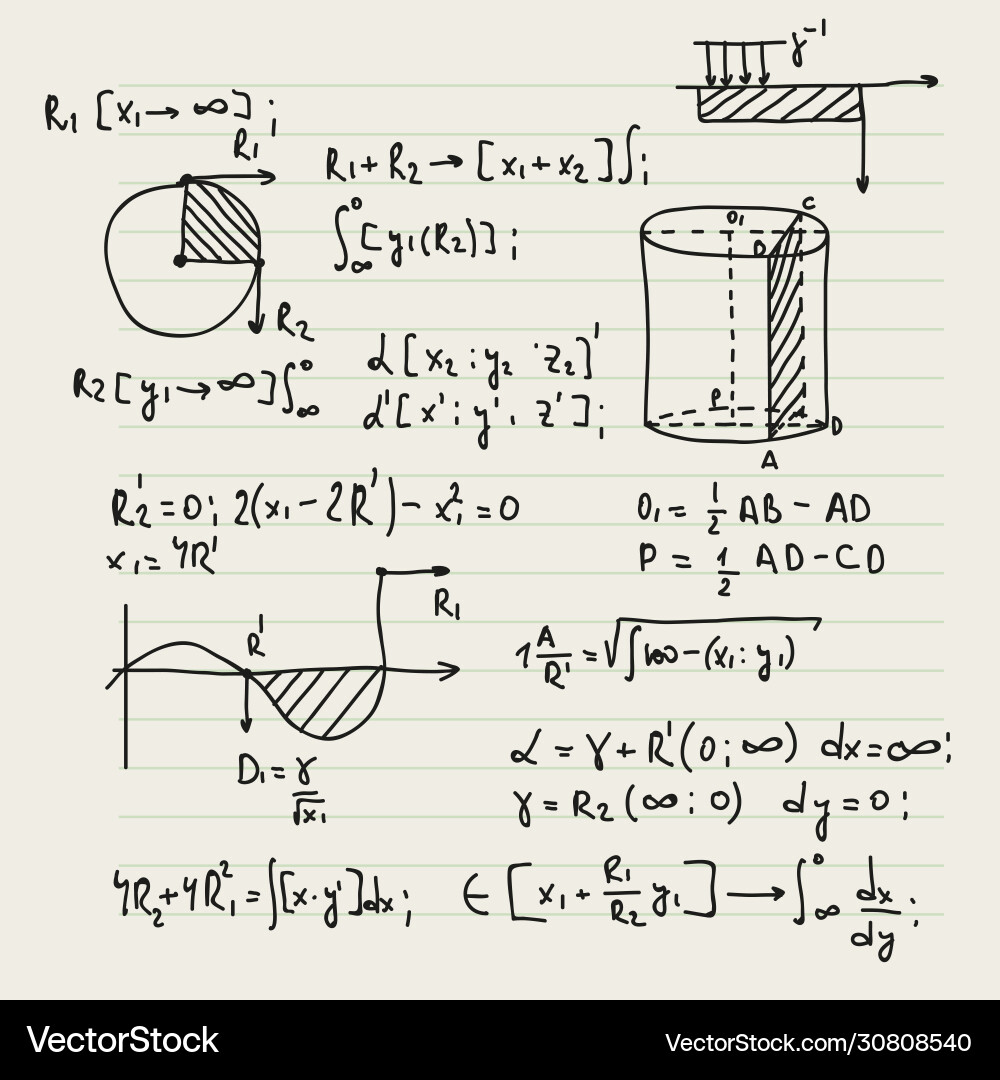 γ⁻¹
R₁ [x₁→ ∞] ;
R₁
R₁ + R₂ → [x₁ + x₂]∫ ;
∫₀∞ [y₁(R₂)] ;
R₂
R₂ [y₁→ ∞]∫₀∞
α [x₂ : y₂ · z₂]'
α' [x' : y' . z'] ;
O₁
C
B
P
D
A
R₂' = 0 ; 2(x₁ − 2R') − x₁² = 0
x₁ = 4R'
O₁ = 1/2 AB − AD
P = 1/2 AD − CD
R₁
R'
D₁ = γ/√x₁
1 A/R' = √∫100 − (x₁ : y₁)
α = γ + R' (0 ; ∞) dx = ∞ ;
γ = R₂ (∞ : 0) dy = 0 ;
4R₂ + 4R₁² = ∫[x · y']dx ;
∈ [x₁ + R₁/R₂ y₁] → ∫₀∞ dx/dy ;
VectorStock
VectorStock.com/30808540